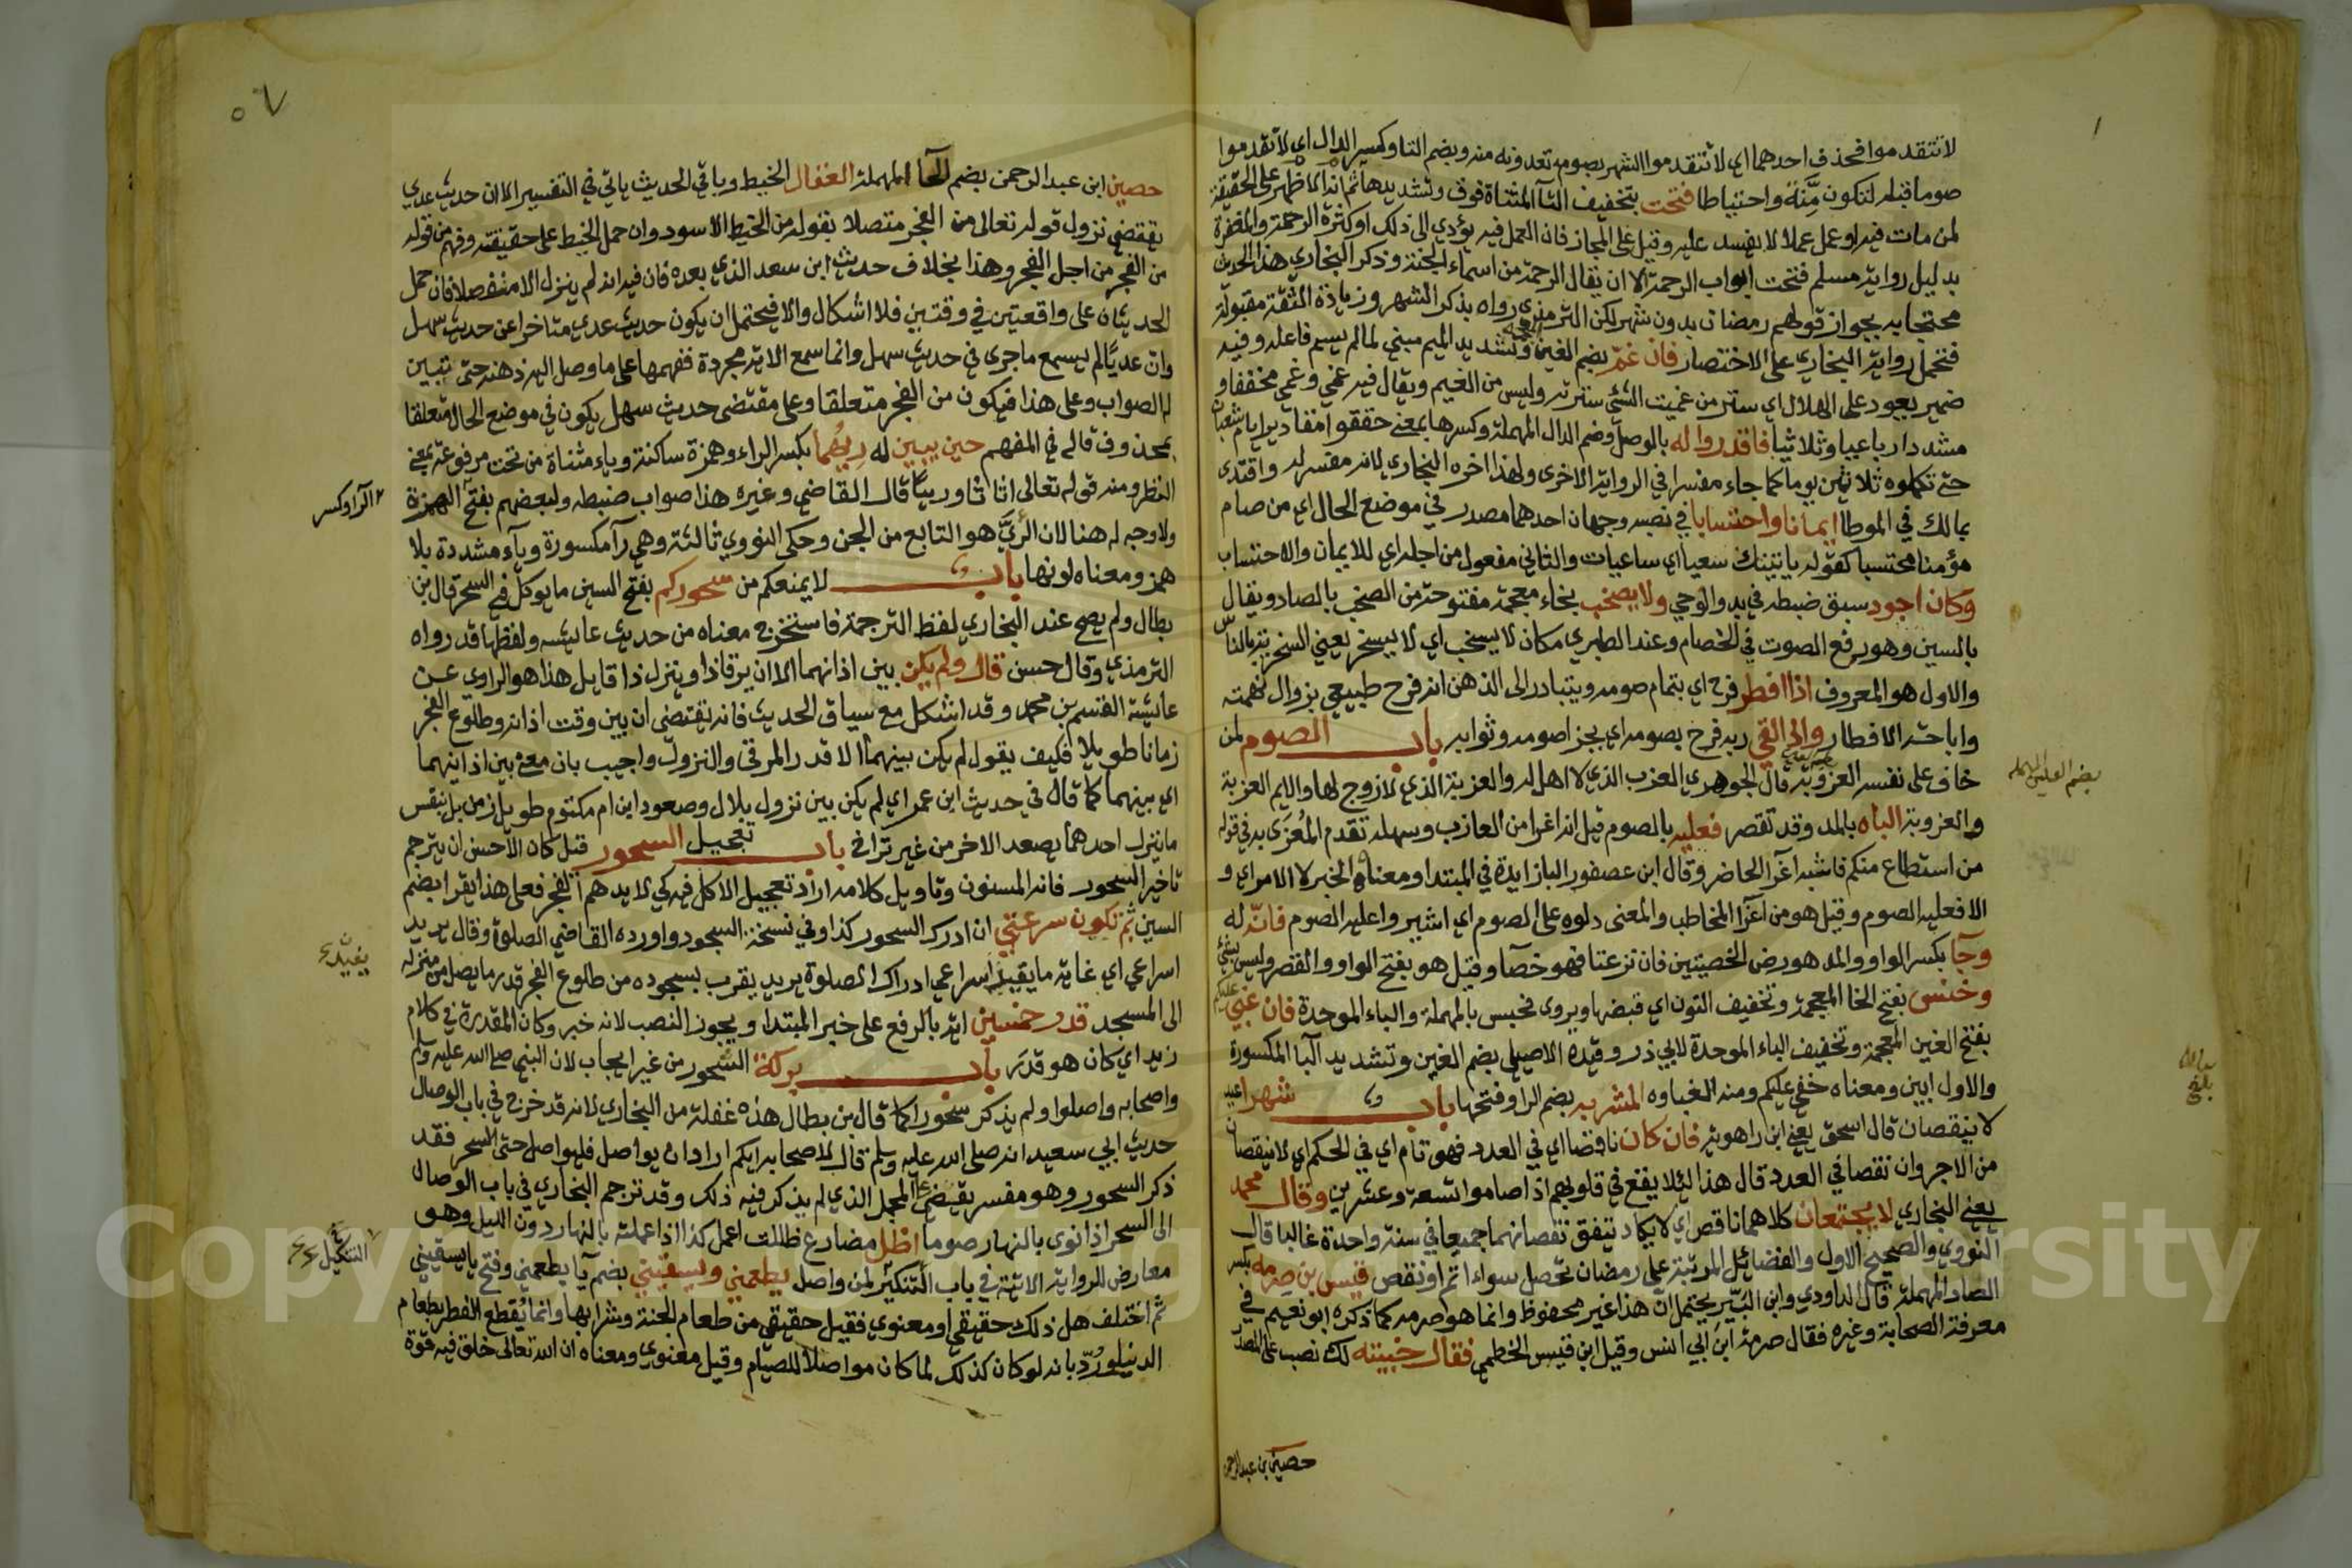 لا تتقدموا فحذف احدهما اي لا تتقدموا الشهر بصوم تعدونه منه وبضم التا وكسر الدال اي لا تقدموا
صوما قبله لتكون مِنَّةً واحتياطا فتحت بتخفيف التآ المثناة فوق وتشديدها ثم انه الا ظهر على الحقيقة
لمن مات فيه او عمل عملا لا يفسد عليه وقيل على المجاز فان العمل فيه يؤدي الى ذلك او كثرة الرحمة والمغفرة
بدليل رواية مسلم فتحت ابواب الرحمة الا ان يقال الرحمة من اسماء الجنة وذكر البخاري هذا الحديث
محتجا به بجواز قولهم رمضان بدون شهر لكن الترمذي رواه بذكر الشهر وزيادة الثقة مقبولة
فتحمل رواية البخاري على الاختصار فان غمّ بضم الغين وتشديد الميم مبني لما لم يسم فاعله وفيه
ضمير يعود على الهلال اي ستر من غميت الشئ سترته وليس من الغيم ويقال فيه غمي وغمي مخففا و
مشددا رباعيا وثلاثيا فاقدروا له بالوصل وضم الدال المهملة وكسرها بمعنى حققوا مقادير ايام شعبان
حتى تكملوه ثلاثين يوما كما جاء مفسرا في الرواية الاخرى ولهذا اخره البخاري لانه مفسر له واقتدى
بمالك في الموطا ايمانا واحتسابا في نصبه وجهان احدهما مصدر في موضع الحال اي من صام
مؤمنا محتسبا كقوله ياتينك سعيا اي ساعيات والثاني مفعول من اجله اي للايمان والاحتساب
وكان اجود سبق ضبطه في بدو الوحي ولا يصخب بخاء معجمة مفتوحة من الصخب بالصاد ويقال
بالسين وهو رفع الصوت في الخصام وعند الطبري مكان لا يصخب اي لا يسخر يعني السخرية بالناس
والاول هو المعروف اذا افطر فرح اي بتمام صومه ويتبادر الى الذهن انه فرح طبيعي بزوال نهمته
واباحة الافطار والى القي ربه فرح بصومه اي بجزا صومه وثوابه باب الصوم لمن
خاف على نفسه العزوبة قال الجوهري العزب الذي لا اهل له والعزبة الذي لا زوج لها والاسم العزبة
بضم العين المهملة
والعزوبة الباه بالمد وقد تقصر فعليه بالصوم قيل انه اغرا من العازب وسهله تقدم المُغرَى به في قوله
من استطاع منكم فاشبه اغرآ الحاضر وقال ابن عصفور البا زايدة في المبتدا ومعناه الخبر لا الامر اي و
الا فعليه الصوم وقيل هو من اغرآ المخاطب والمعنى دلوه على الصوم اي اشيروا عليه الصوم فانّه له
وجآ بكسر الواو والمد هو رض الخصيتين فان نزعتا فهو خصآ وقيل هو بفتح الواو والقصر وليس بشئ
وخنس بفتح الخا المعجمة وتخفيف النون اي قبضها ويروى فحبس بالمهملة والباء الموحدة فان غبي عليكم
بفتح الغين المعجمة وتخفيف الباء الموحدة لابي ذر وقيده الاصيلي بضم الغين وتشديد البآ المكسورة
والاول ابين ومعناه خفي عليكم ومنه الغباوه المشربه بضم الرا وفتحها باب شهرا عيد
لا ينقصان قال اسحق يعني ابن راهوية فان كان ناقصا اي في العدد فهو تام اي في الحكم اي لا ينقصان
من الاجر وان نقصا في العدد قال هذا لئلا يقع في قلوبهم اذا صاموا تسعة وعشرين وقال محمد
يعني البخاري لا يجتمعان كلاهما ناقص اي لا يكاد يتفق نقصانهما جميعا في سنة واحدة غالبا قال
النووي والصحيح الاول والفضائل المرتبة على رمضان تحصل سواء اتم او نقص قيس بن صرمه بكسر
الصاد المهملة قال الداودي وابن التين يحتمل ان هذا غير محفوظ وانما هو صرمه كما ذكره ابو نعيم في
معرفة الصحابة وغيره فقال صرمة ابن ابي انس وقيل ابن قيس الخطمي فقال خيبته لك نصب على المصدر
حصين بن عبد الرحمن
٥٦
حصين ابن عبد الرحمن بضم الحآ المهملة العقال الخيط وباقي الحديث ياتي في التفسير الا ان حديث عدي
يقتضي نزول قوله تعالى من الفجر متصلا بقوله من الخيط الاسود وان حمل الخيط على حقيقته وفهم من قوله
من الفجر من اجل الفجر وهذا بخلاف حديث ابن سعد الذي بعده فان فيه انه لم ينزل الا منفصلا فان حمل
الحديثان على واقعتين في وقتين فلا اشكال والا فيحتمل ان يكون حديث عدي متاخرا عن حديث سهل
وان عديًا لم يسمع ما جرى في حديث سهل وانما سمع الاية مجردة ففهمها على ما وصل اليه ذهنه حتى تبين
له الصواب وعلى هذا فيكون من الفجر متعلقا وعلى مقتضى حديث سهل يكون في موضع الحال متعلقا
بمحذوف قاله في المفهم حين يبين له رِئيُهُما بكسر الراء وهمزة ساكنة وياء مثناة من تحت مرفوعة بمعنى
النظر ومنه قوله تعالى اثاثا ورِييًا قال القاضي وغيره هذا صواب ضبطه ولبعضهم بفتح الهمزة
الرا وكسر
ولا وجه له هنا لان الرَّئيَّ هو التابع من الجن وحكى النووي ثالثة وهي رآ مكسورة وياء مشددة بلا
همز ومعناه لونها باب لا يمنعكم من سحوركم بفتح السين ما يوكل في السحر قال بن
بطال ولم يصح عند البخاري لفظ الترجمة فاستخرج معناه من حديث عايشه ولفظها قد رواه
الترمذي وقال حسن قال ولم يكن بين اذانهما الا ان يرقا ذا وينزل ذا قايل هذا هو الراوي عن
عايشة القسم بن محمد وقد اشكل مع سياق الحديث فانه يقتضي ان بين وقت اذانه وطلوع الفجر
زمانا طويلا فكيف يقول لم يكن بينهما الا قدر المرقى والنزول واجيب بان معنى بين اذانيهما
اي بينهما كما قال في حديث ابن عمر اي لم يكن بين نزول بلال وصعود ابن ام مكتوم طويل زمن بل بنفس
ما ينزل احدهما يصعد الاخر من غير تراخ باب تعجيل السحور قيل كان الاحسن ان يترجم
تاخير السحور فانه المسنون وتاويل كلامه اراد تعجيل الاكل فيه كي لا يدهمه الفجر فعلى هذا يقرا بضم
السين ثم تكون سرعتي ان ادرك السحور كذا وفي نسخة السجود واورده القاضي الصلاة وقال يريد
اسراعي اي غاية ما يفيد اسراعي ادراك الصلوة يريد يقرب بسجوده من طلوع الفجر قدر ما يصل من منزله
يفيدن
الى المسجد قدر خمسين اية بالرفع على خبر المبتدا ويجوز النصب لانه خبر وكان المقدرة في كلام
زيد اي كان هو قدرَ باب بركة السُحور من غير ايجاب لان النبي صلى الله عليه وسلم
واصحابه واصلوا ولم يذكر سحورا كما قال بن بطال هذه غفلة من البخاري لانه قد خرج في باب الوصال
حديث ابي سعيد انه صلى الله عليه وسلم قال لاصحابه ايكم اراد ان يواصل فليواصل حتى السحر فقد
ذكر السحور وهو مفسر يقضي على المجمل الذي لم يذكر فيه ذلك وقد ترجم البخاري في باب الوصال
الى السحر اذا نوى بالنهار صوما اظل مضارع ظللت اعمل كذا اذا عملته بالنهار دون الليل وهو
معارض للرواية الاتية في باب التنكير لمن واصل يطعمني ويسقيني بضم يآ يطعمني وفتح يا يسقيني
التنكيل
ثم اختلف هل ذلك حقيقي او معنوي فقيل حقيقي من طعام الجنة وشرابها وانما يُقطع الفطر بطعام
الدنيا ورُدّ بانه لو كان كذلك لما كان مواصلا للصيام وقيل معنوي ومعناه ان الله تعالى خلق فيه قوّة